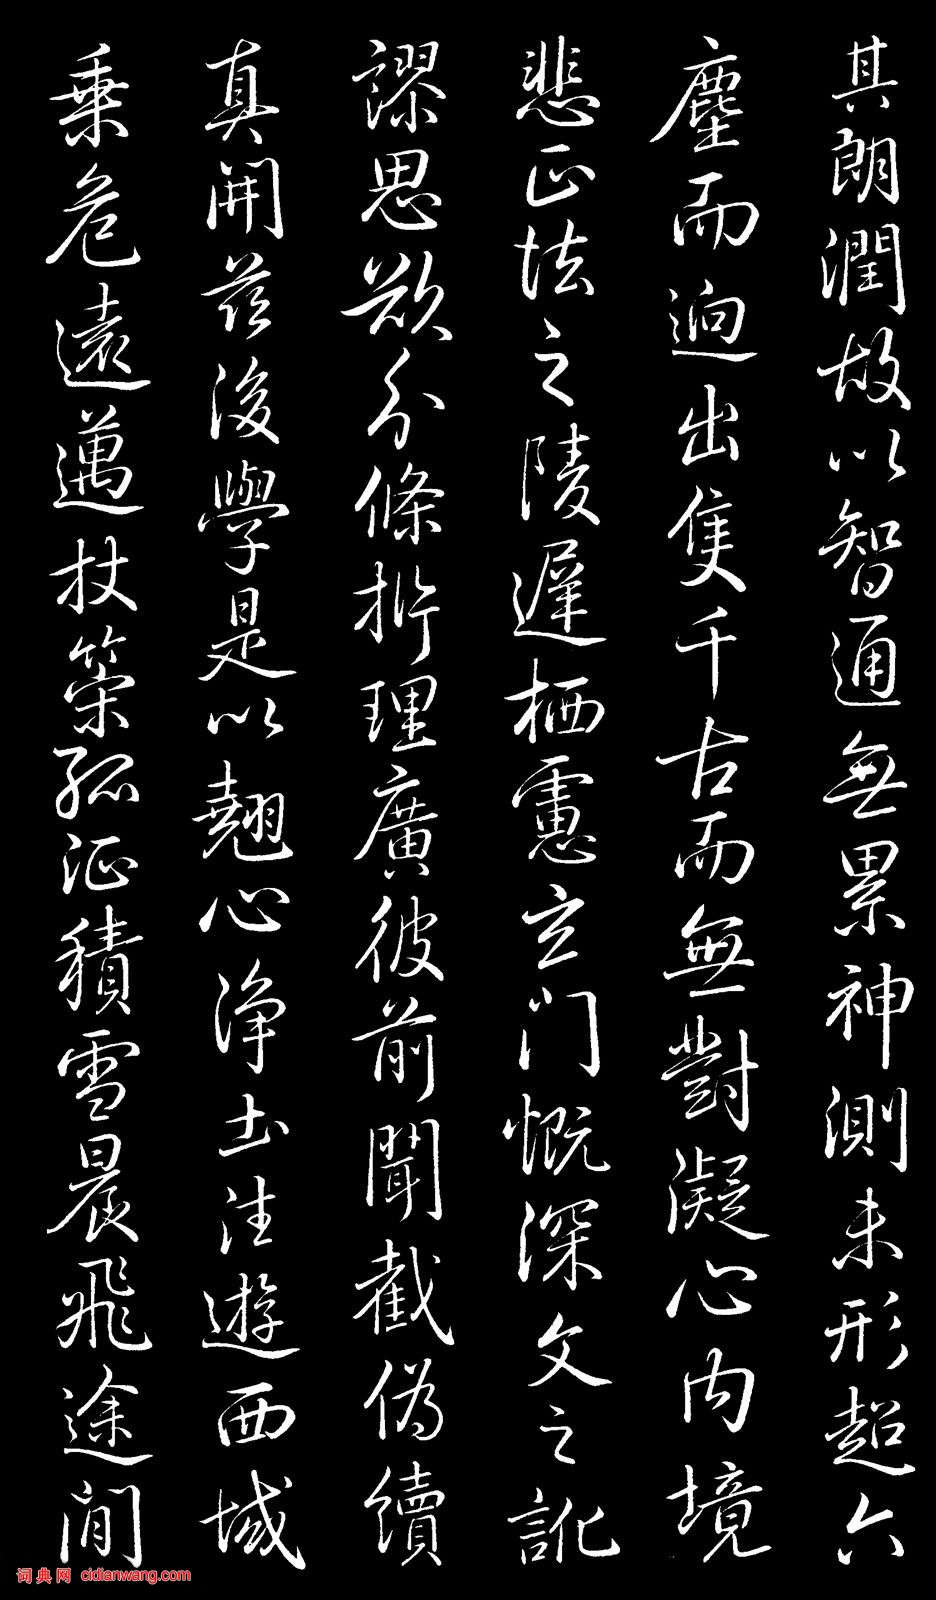 其朗潤故以智通無累神測未形超六
塵而迥出隻千古而無對凝心內境
悲正法之陵遲栖慮玄門慨深文之訛
謬思欲分條析理廣彼前聞截偽續
真開茲後學是以翹心淨土往遊西域
乗危遠邁杖策孤征積雪晨飛途閒
词典网 cidianwang.com